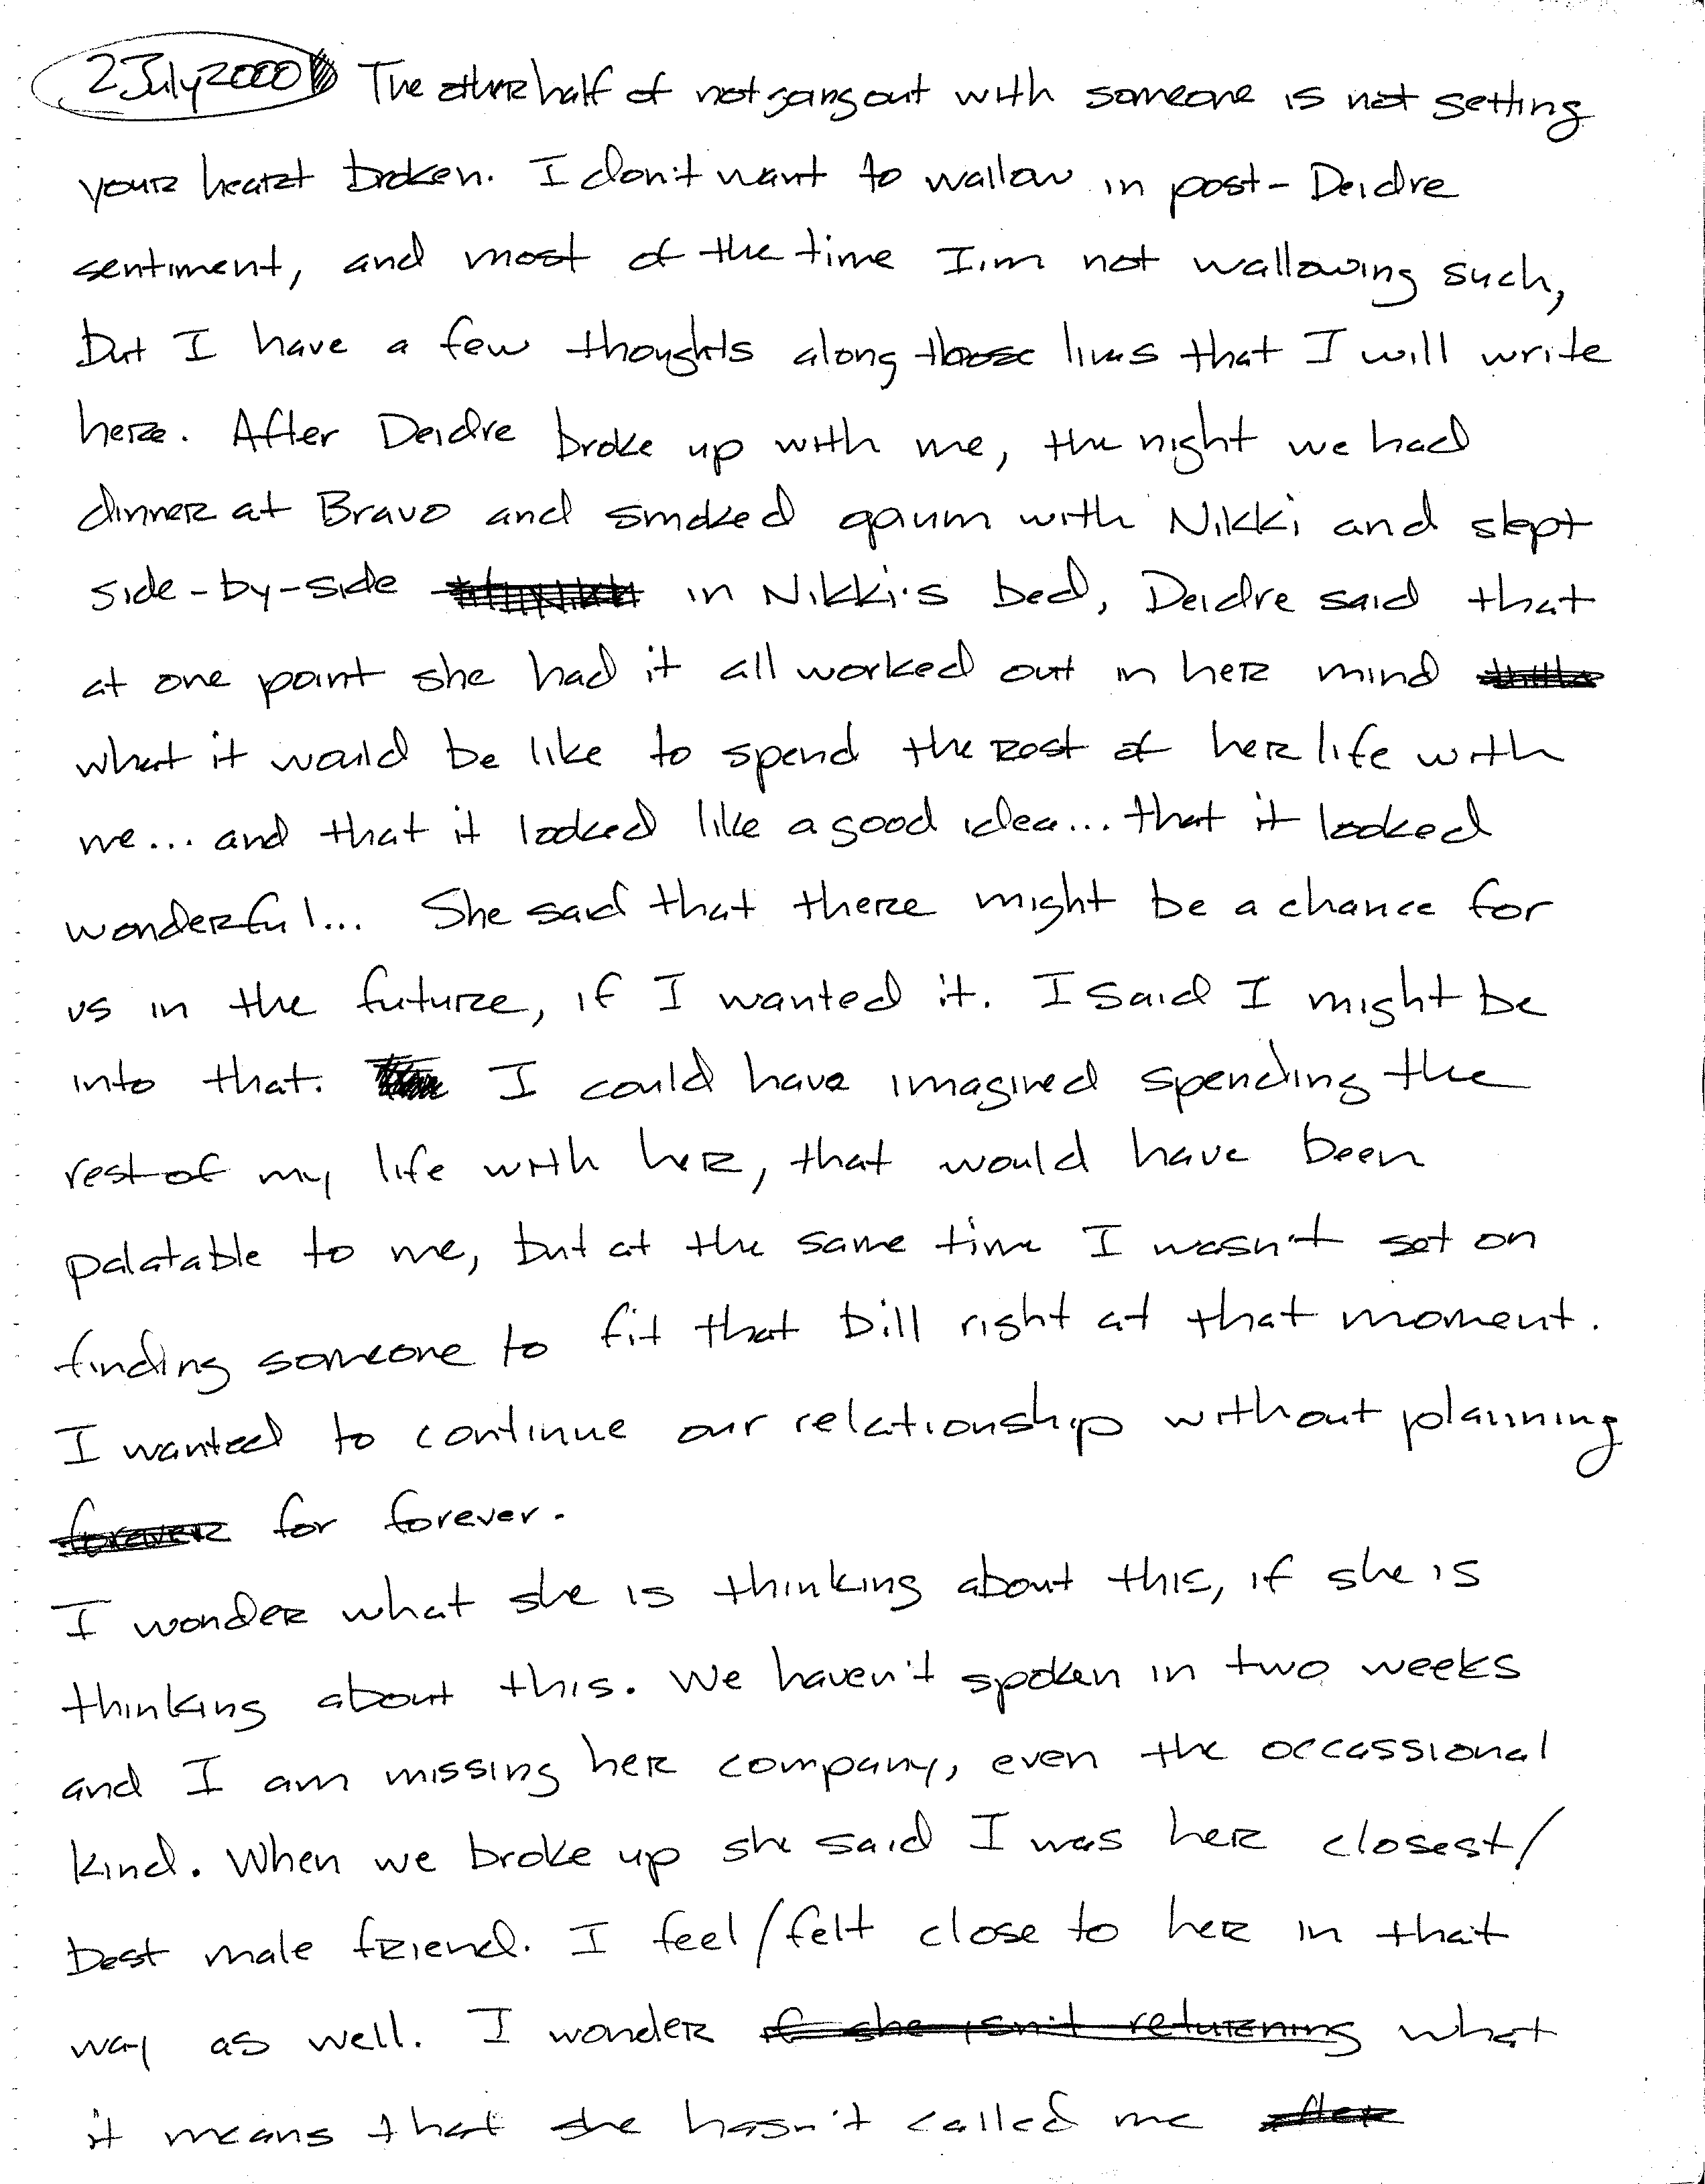 2 July 2000 The other half of not going out with someone is not getting
your heart broken. I don't want to wallow in post-Deidre
sentiment, and most of the time I'm not wallowing such,
but I have a few thoughts along those lines that I will write
here. After Deidre broke up with me, the night we had
dinner at Bravo and smoked qaum with Nikki and slept
side-by-side in Nikki's bed, Deidre said that
at one point she had it all worked out in her mind
what it would be like to spend the rest of her life with
me... and that it looked like a good idea... that it looked
wonderful... She said that there might be a chance for
us in the future, if I wanted it. I said I might be
into that. I could have imagined spending the
rest of my life with her, that would have been
palatable to me, but at the same time I wasn't set on
finding someone to fit that bill right at that moment.
I wanted to continue our relationship without planning
forever for forever.
I wonder what she is thinking about this, if she is
thinking about this. We haven't spoken in two weeks
and I am missing her company, even the occassional
kind. When we broke up she said I was her closest/
best male friend. I feel/felt close to her in that
way as well. I wonder if she isn't returning what
it means that she hasn't called me after